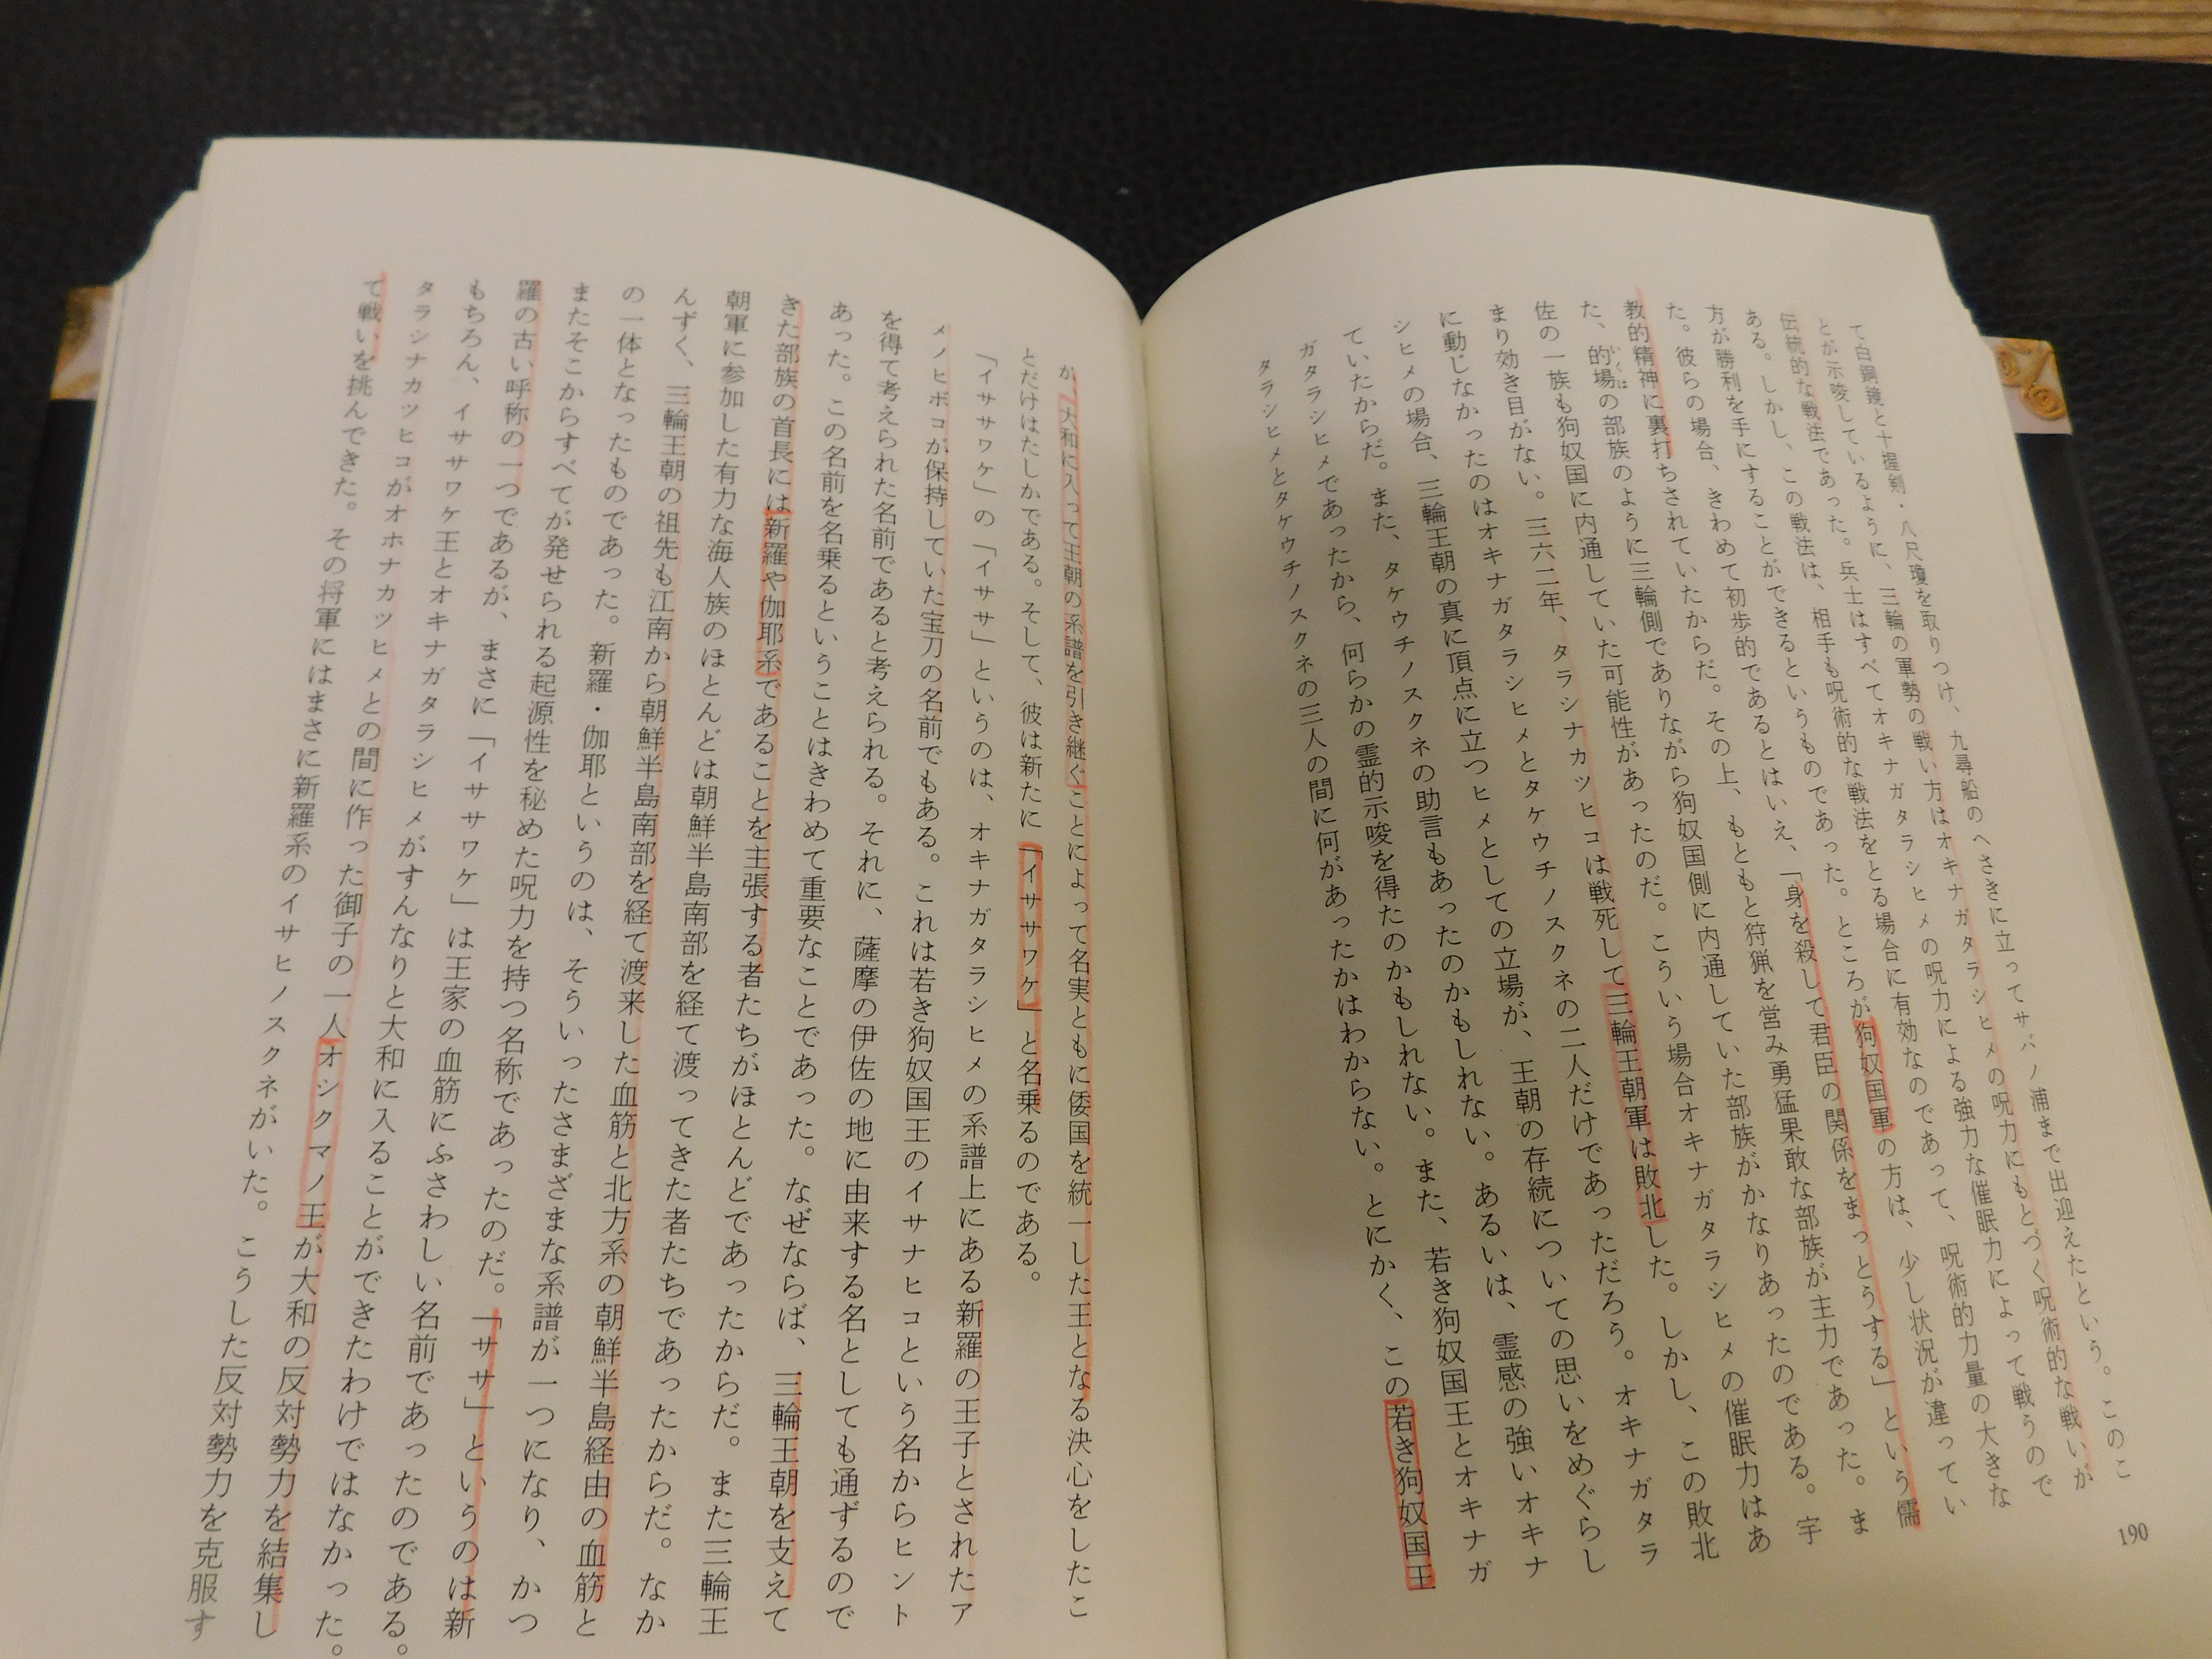 て白銅鏡と十握剣・八尺瓊を取りつけ、九尋船のへさきに立ってサバノ浦まで出迎えたという。このこ
とが示唆しているように、三輪の軍勢の戦い方はオキナガタラシヒメの呪力にもとづく呪術的な戦いが
伝統的な戦法であった。兵士はすべてオキナガタラシヒメの呪力による強力な催眠力によって戦うので
ある。しかし、この戦法は、相手も呪術的な戦法をとる場合に有効なのであって、呪術的力量の大きな
方が勝利を手にすることができるというものであった。ところが狗奴国軍の方は、少し状況が違ってい
た。彼らの場合、きわめて初歩的であるとはいえ、「身を殺して君臣の関係をまっとうする」という儒
教的精神に裏打ちされていたからだ。その上、もともと狩猟を営み勇猛果敢な部族が主力であった。ま
た、的場の部族のように三輪側でありながら狗奴国側に内通していた部族がかなりあったのである。宇
いくは
佐の一族も狗奴国に内通していた可能性があったのだ。こういう場合オキナガタラシヒメの催眠力はあ
まり効き目がない。三六二年、タラシナカツヒコは戦死して三輪王朝軍は敗北した。しかし、この敗北
に動じなかったのはオキナガタラシヒメとタケウチノスクネの二人だけであっただろう。オキナガタラ
シヒメの場合、三輪王朝の真に頂点に立つヒメとしての立場が、王朝の存続についての思いをめぐらし
ていたからだ。また、タケウチノスクネの助言もあったのかもしれない。あるいは、霊感の強いオキナ
ガタラシヒメであったから、何らかの霊的示唆を得たのかもしれない。また、若き狗奴国王とオキナガ
タラシヒメとタケウチノスクネの三人の間に何があったかはわからない。とにかく、この若き狗奴国王
190
が、大和に入って王朝の系譜を引き継ぐことによって名実ともに倭国を統一した王となる決心をしたこ
とだけはたしかである。そして、彼は新たに「イササワケ」と名乗るのである。
「イササワケ」の「イササ」というのは、オキナガタラシヒメの系譜上にある新羅の王子とされたア
メノヒボコが保持していた宝刀の名前でもある。これは若き狗奴国王のイサナヒコという名からヒント
を得て考えられた名前であると考えられる。それに、薩摩の伊佐の地に由来する名としても通ずるので
あった。この名前を名乗るということはきわめて重要なことであった。なぜならば、三輪王朝を支えて
きた部族の首長には新羅や伽耶系であることを主張する者たちがほとんどであったからだ。また三輪王
朝軍に参加した有力な海人族のほとんどは朝鮮半島南部を経て渡ってきた者たちであったからだ。なか
んずく、三輪王朝の祖先も江南から朝鮮半島南部を経て渡来した血筋と北方系の朝鮮半島経由の血筋と
の一体となったものであった。新羅・伽耶というのは、そういったさまざまな系譜が一つになり、かつ
またそこからすべてが発せられる起源性を秘めた呪力を持つ名称であったのだ。「ササ」というのは新
羅の古い呼称の一つであるが、まさに「イササワケ」は王家の血筋にふさわしい名前であったのである。
もちろん、イササワケ王とオキナガタラシヒメがすんなりと大和に入ることができたわけではなかった。
タラシナカツヒコがオホナカツヒメとの間に作った御子の一人オシクマノ王が大和の反対勢力を結集し
て戦いを挑んできた。その将軍にはまさに新羅系のイサヒノスクネがいた。こうした反対勢力を克服す